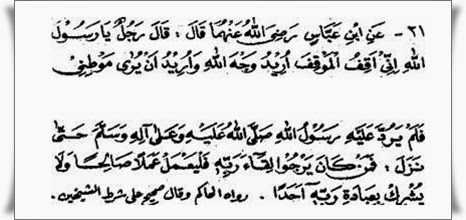 ٢١ - عَنِ ابْنِ عَبَّاسٍ رَضِيَ اللهُ عَنْهُمَا قَالَ : قَالَ رَجُلٌ يَا رَسُولَ
اللهِ إِنِّي أَقِفُ الْمَوْقِفَ أُرِيدُ وَجْهَ اللهِ وَأُرِيدُ أَنْ يُرَى مَوْطِنِي
فَلَمْ يَرُدَّ عَلَيْهِ رَسُولُ اللهِ صَلَّى اللهُ عَلَيْهِ وَعَلَى آلِهِ وَسَلَّمَ حَتَّى
نَزَلَ : فَمَنْ كَانَ يَرْجُوا لِقَاءَ رَبِّهِ فَلْيَعْمَلْ عَمَلًا صَالِحًا وَلَا
يُشْرِكْ بِعِبَادَةِ رَبِّهِ أَحَدًا . رواه الحاكم وقال صحيح على شرط الشيخين .